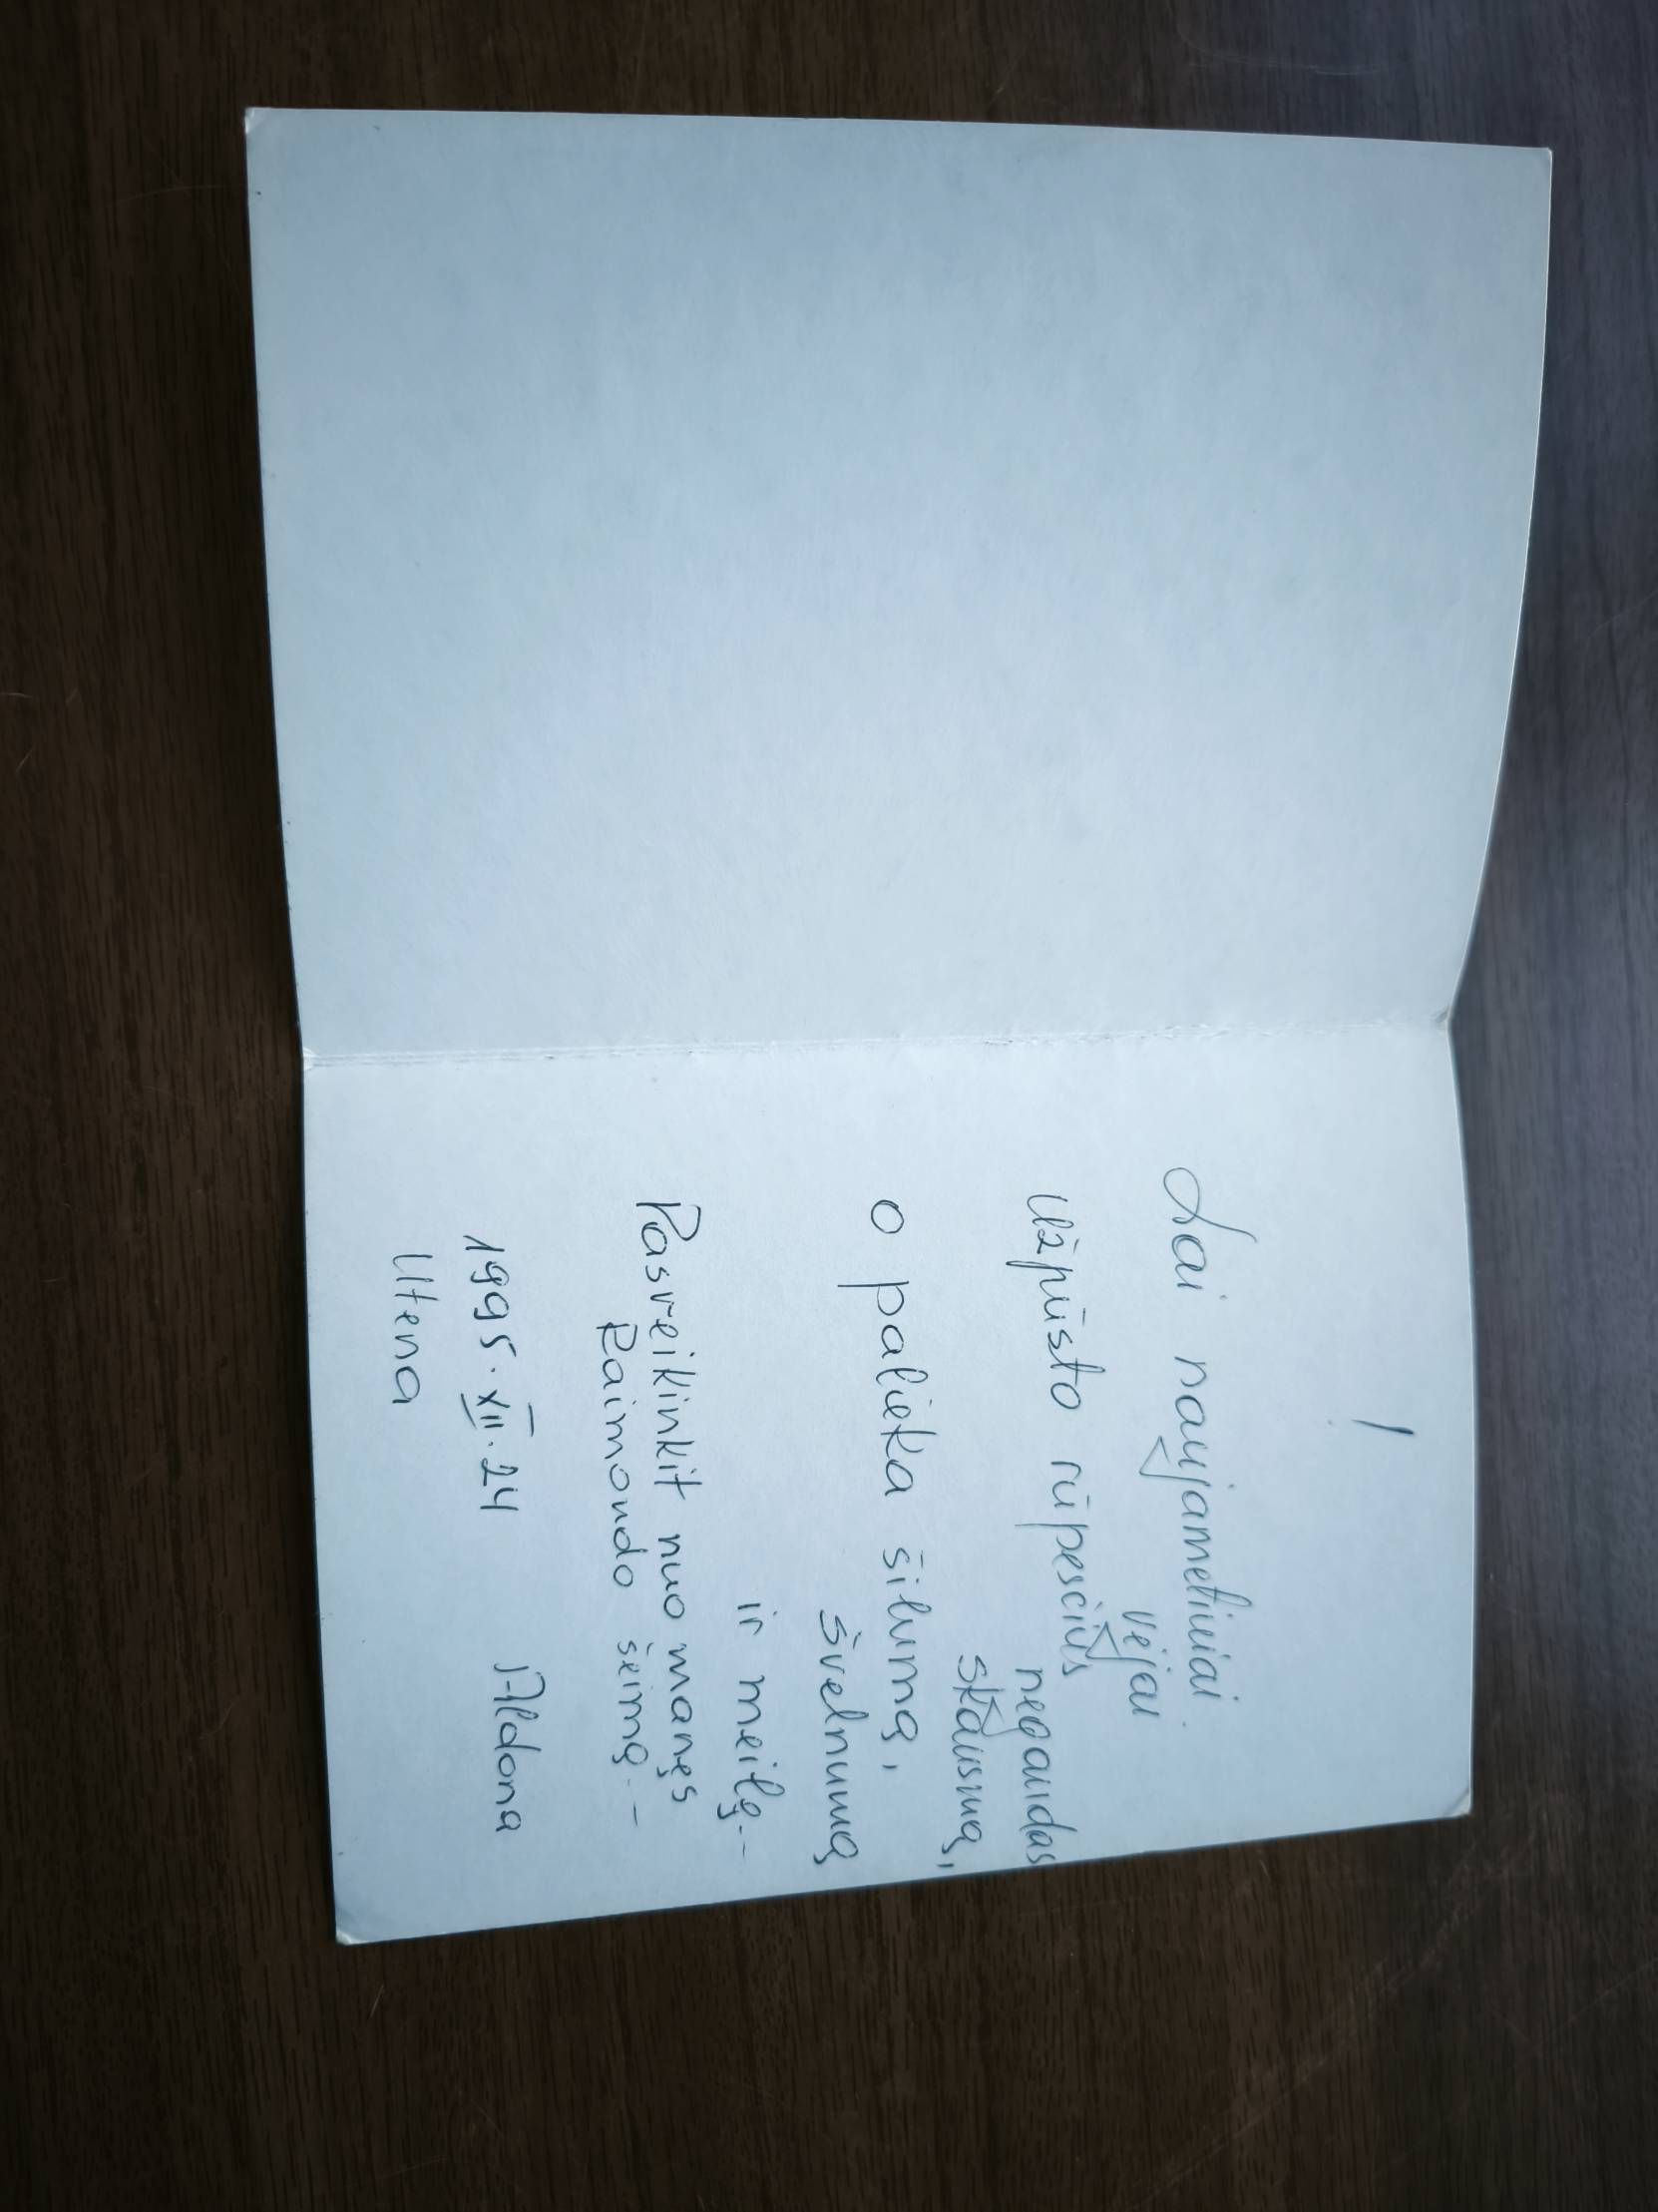 !
Lai naujametiniai
vėjai
Užpūsto rūpesčius
negandas
skausmą,
O palieka šilumą,
švelnumą
ir meilę. –
Pasveikinkit nuo manęs
Raimondo šeimą. –
1995. XII. 24 Aldona
Utena